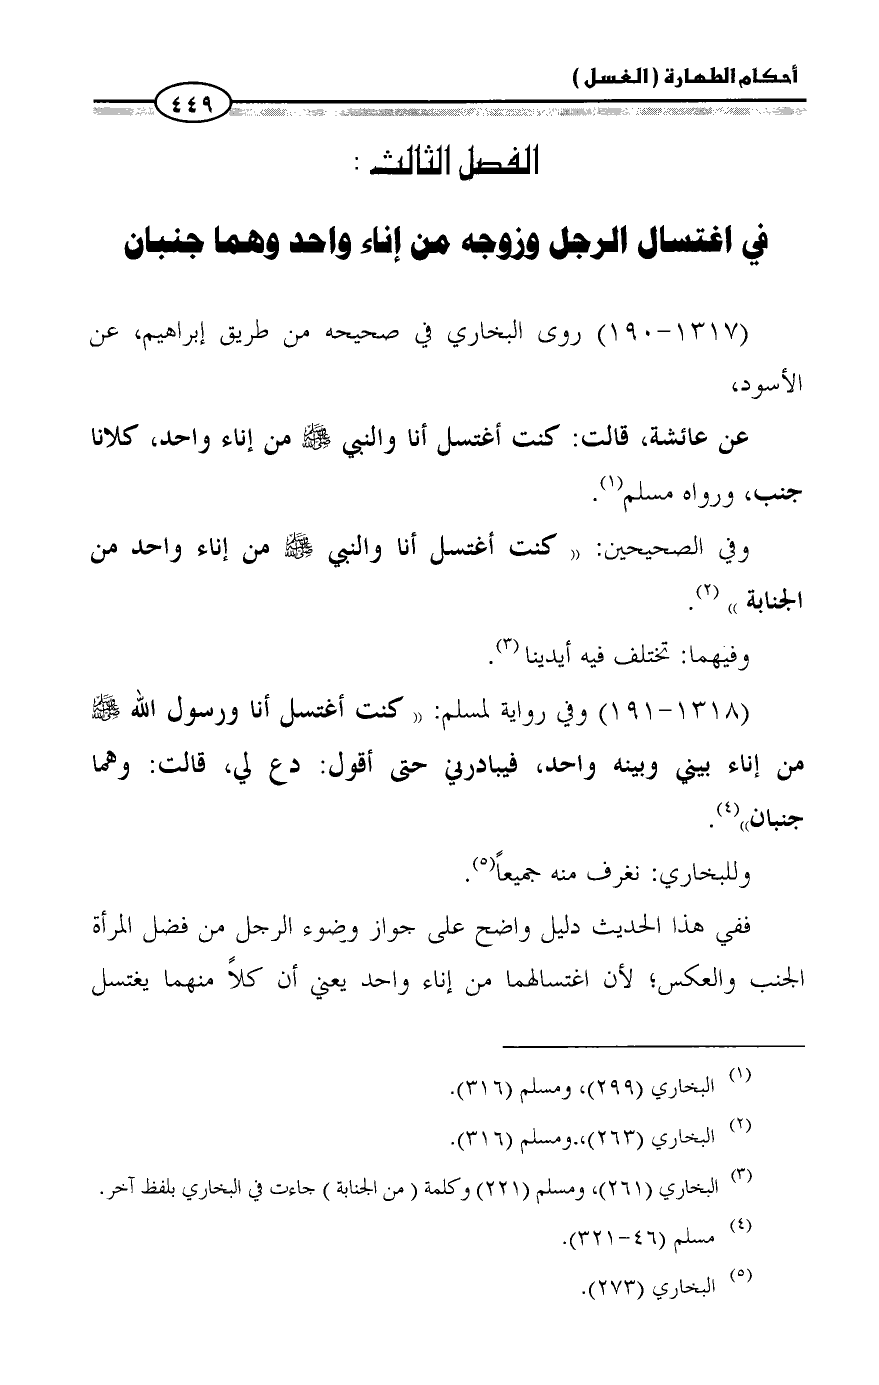 أحكام الطهارة ( الغسل )
٤٤٩
الفصل الثالث :
في اغتسال الرجل وزوجه من إناء واحد وهما جنبان
(١٣١٧-١٩٠) روى البخاري في صحيحه من طريق إبراهيم، عن
الأسود،
عن عائشة، قالت: كنت أغتسل أنا والنبي ﷺ من إناء واحد، كلانا
جنب، ورواه مسلم(١).
وفي الصحيحين: (( كنت أغتسل أنا والنبي ﷺ من إناء واحد من
الجنابة )) (٢).
وفيهما: تختلف فيه أيدينا(٣).
(١٣١٨-١٩١) وفي رواية لمسلم: (( كنت أغتسل أنا ورسول الله ﷺ
من إناء بيني وبينه واحد، فيبادرني حتى أقول: دع لي، قالت: وهما
جنبان))(٤).
وللبخاري: نغرف منه جميعاً(٥).
ففي هذا الحديث دليل واضح على جواز وضوء الرجل من فضل المرأة
الجنب والعكس؛ لأن اغتسالهما من إناء واحد يعني أن كلاً منهما يغتسل
(١) البخاري (٢٩٩)، ومسلم (٣١٦).
(٢) البخاري (٢٦٣)،.ومسلم (٣١٦).
(٣) البخاري (٢٦١)، ومسلم (٢٢١) وكلمة ( من الجنابة ) جاءت في البخاري بلفظ آخر.
(٤) مسلم (٤٦-٣٢١).
(٥) البخاري (٢٧٣).